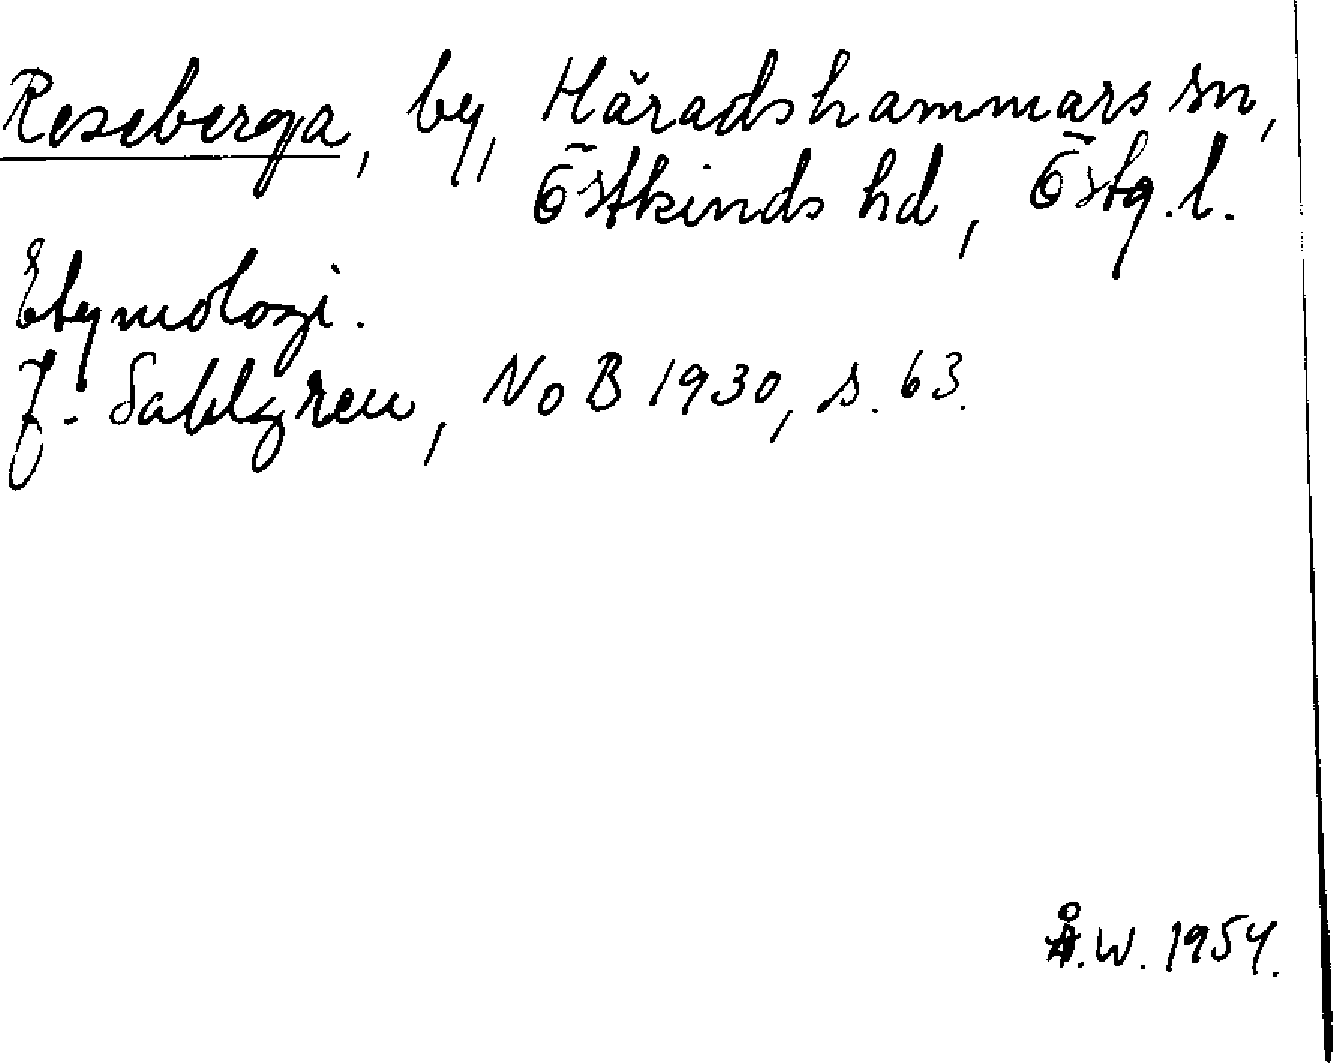 Reseberga, by, Häradshammars sn,
Östkinds hd, Östg. l.
Etymologi.
J. Sahlgren, NoB 1930, s. 63.
Å.W. 1954.